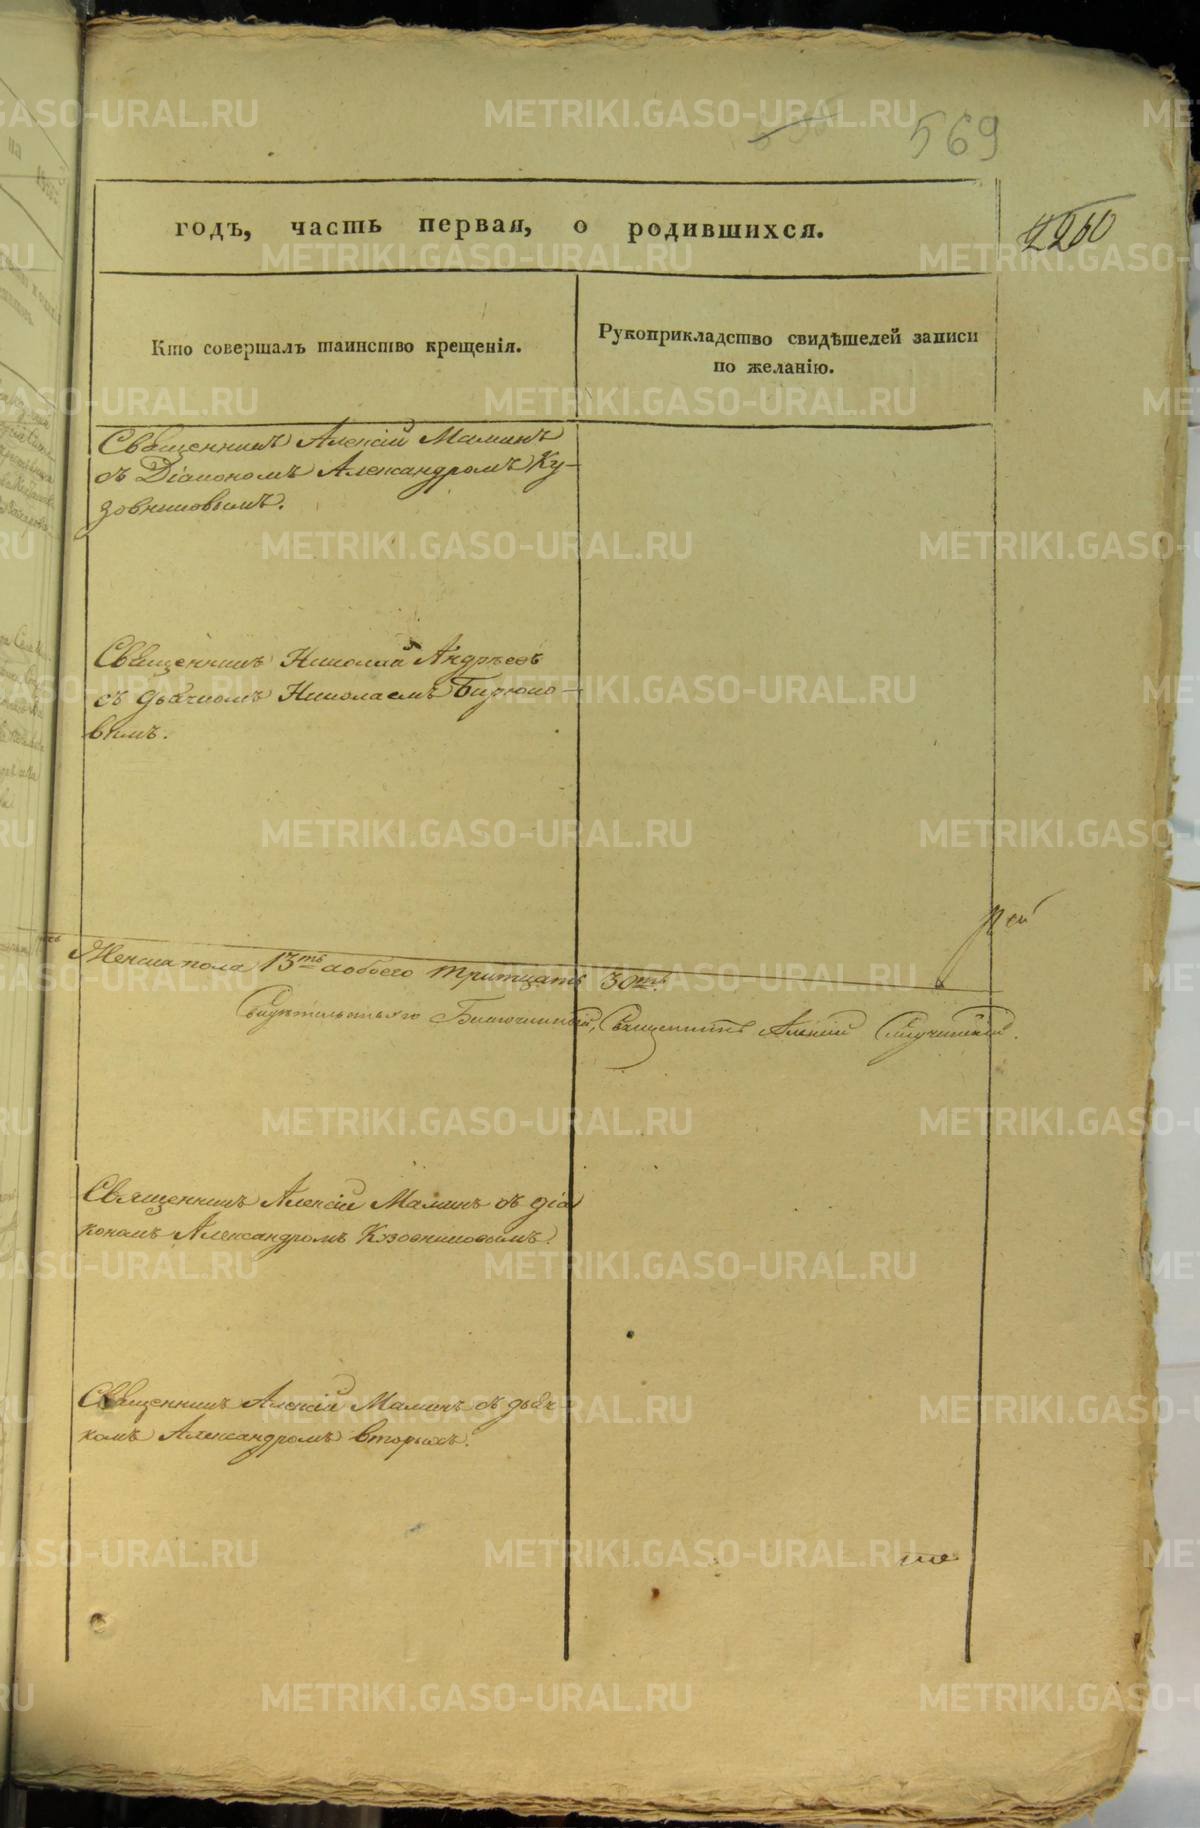 569
2260
годъ, часть первая, о родившихся.
Кто совершалъ таинство крещенія.
Рукоприкладство свидѣтелей записи
по желанію.
Священникъ Алексій Маминъ
съ Діакономъ Александромъ Ку-
зовниковымъ.
Священникъ Николай Андреевъ
съ дьячкомъ Николаемъ Бирюко-
вымъ.
Женска пола 13ть а обоего тритцать 30ть.
Свидѣтельствовалъ Благочинный, Священникъ Алексій
Священникъ Алексій Маминъ съ діа
кономъ Александромъ Кузовниковымъ.
Священникъ Алексій Маминъ съ дьяч
комъ Александромъ Вторыхъ.
METRIKI.GASO-URAL.RU